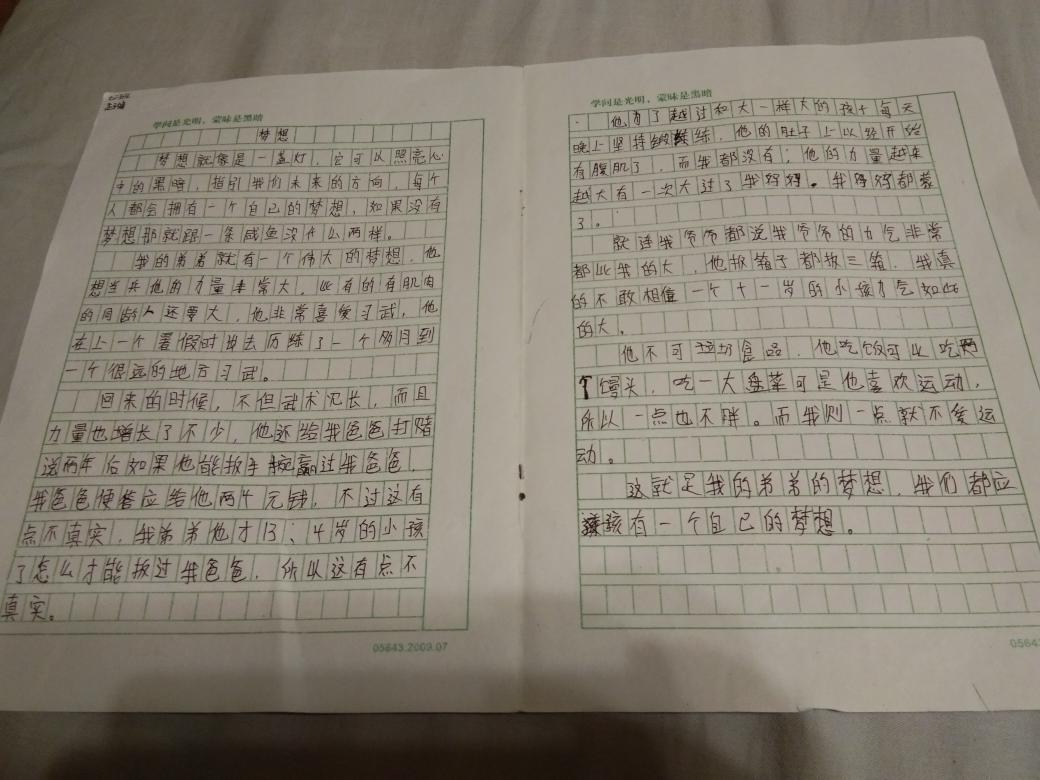 学问是光明，蒙昧是黑暗
梦想
梦想就像是一盏灯，它可以照亮心
中的黑暗，指引我们未来的方向，每个
人都会拥有一个自己的梦想，如果没有
梦想那就跟一条咸鱼没什么两样。
我的弟弟就有一个伟大的梦想，他
想当兵他的力量非常大，比有的有肌肉
的同龄人还要大，他非常喜爱习武，他
在上一个暑假时出去历练了一个多月到
一个很远的地方习武。
回来的时候，不但武术见长，而且
力量也增长了不少，他还给我爸爸打赌
说两年后如果他能扳手腕赢过我爸爸，
我爸爸便答应给他两个元钱，不过这有
点不真实，我弟弟他才13；4岁的小孩
了怎么才能扳过我爸爸，所以这有点不
真实。
05643.2009.07
学问是光明，蒙昧是黑暗
他为了越过和大一样大的孩子每天
晚上坚持锻练，他的肚子上以经开始
有腹肌了，而我都没有；他的力量越来
越大有一次大过了我哥哥。我哥哥都蒙
了。
就连我爷爷都说我爷爷的力气非常
都比我的大，他扳箱子都扳三箱，我真
的不敢相信一个十一岁的小孩力气如此
的大。
他不可垃圾食品，他吃饭可以吃两
个馒头，吃一大盘菜可是他喜欢运动，
所以一点也不胖。而我则一点就不爱运
动。
这就是我的弟弟的梦想，我们都应
该有一个自己的梦想。